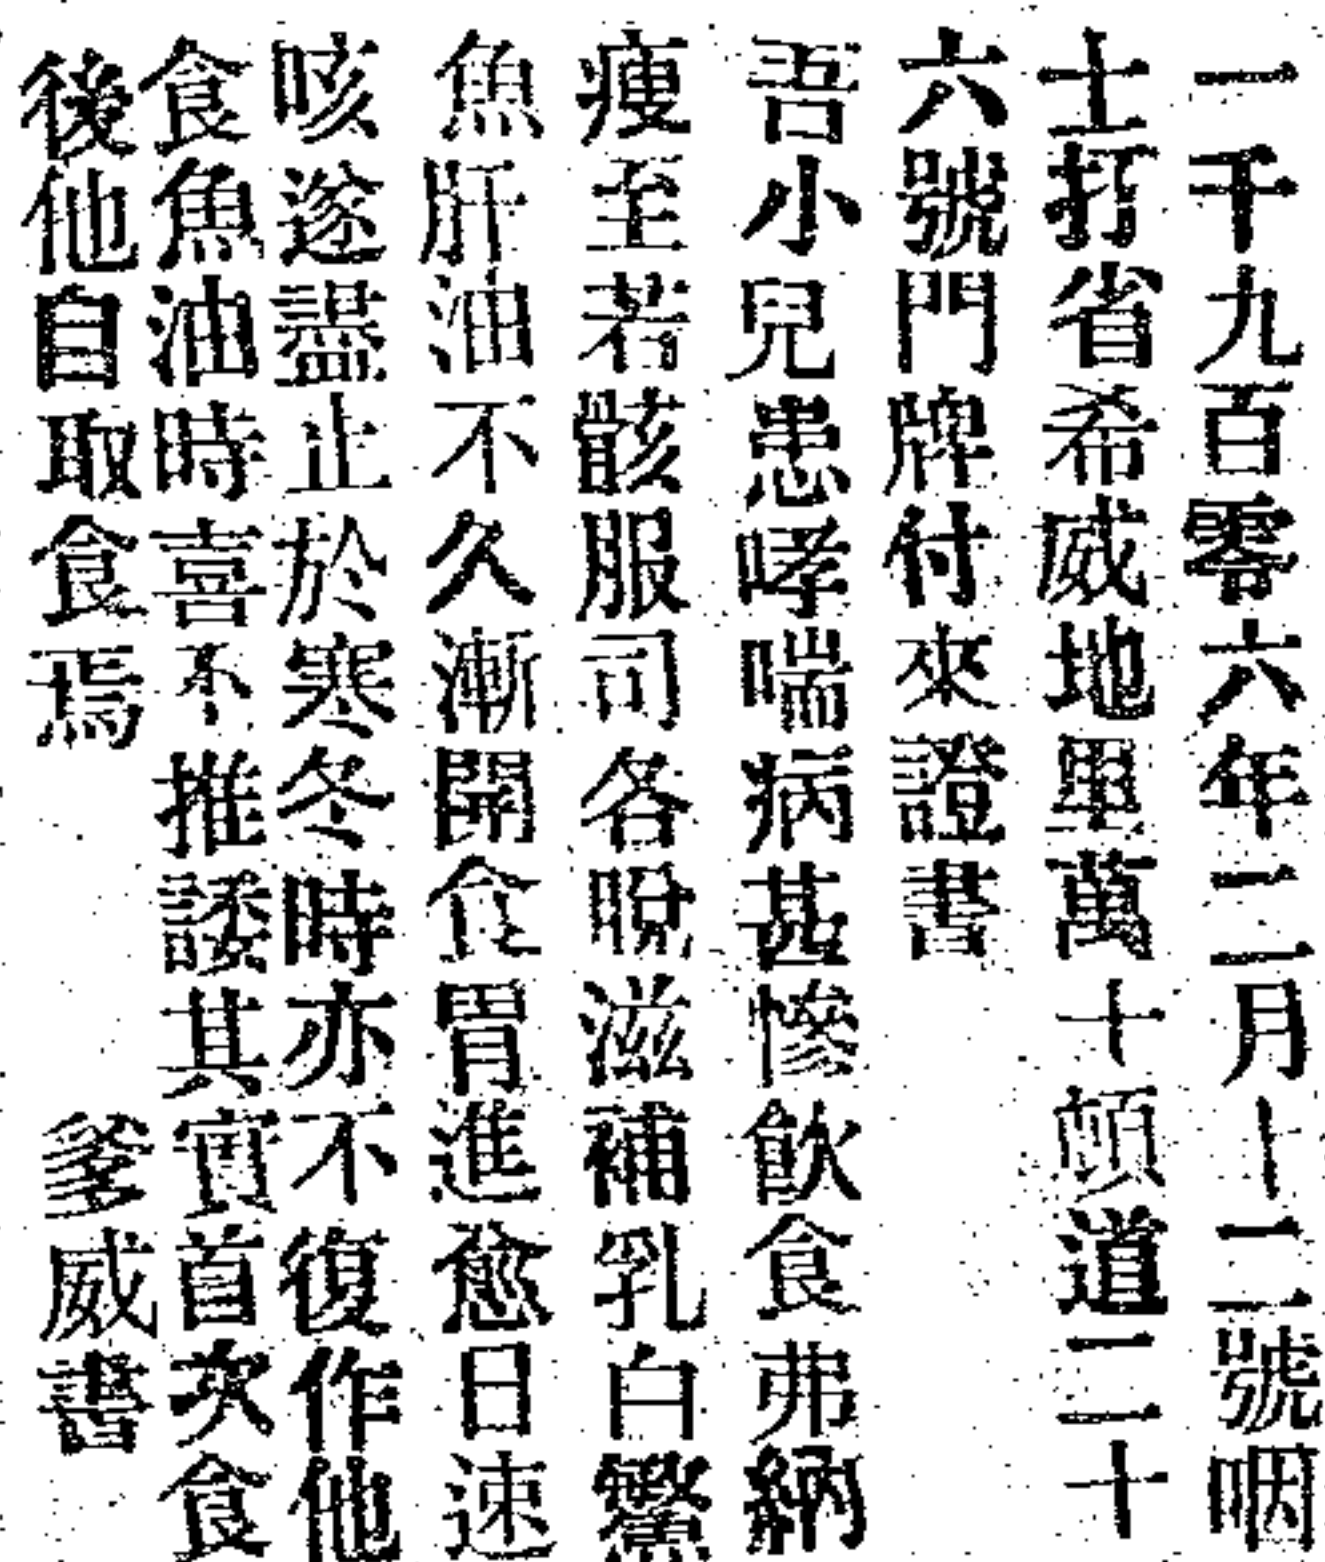 一千九百零六年二月十二號咽
士打省希威地里萬十頓道二十
六號門牌付來證書
吾小兒患哮喘病甚慘飲食弗納
瘦至若骸服司各脫滋補乳白鰵
魚肝油不久漸開食胃進愈日速
咳遂盡止於寒冬時亦不復作他
食魚油時喜不推諉其實首次食
後他自取食焉　　　爹威書